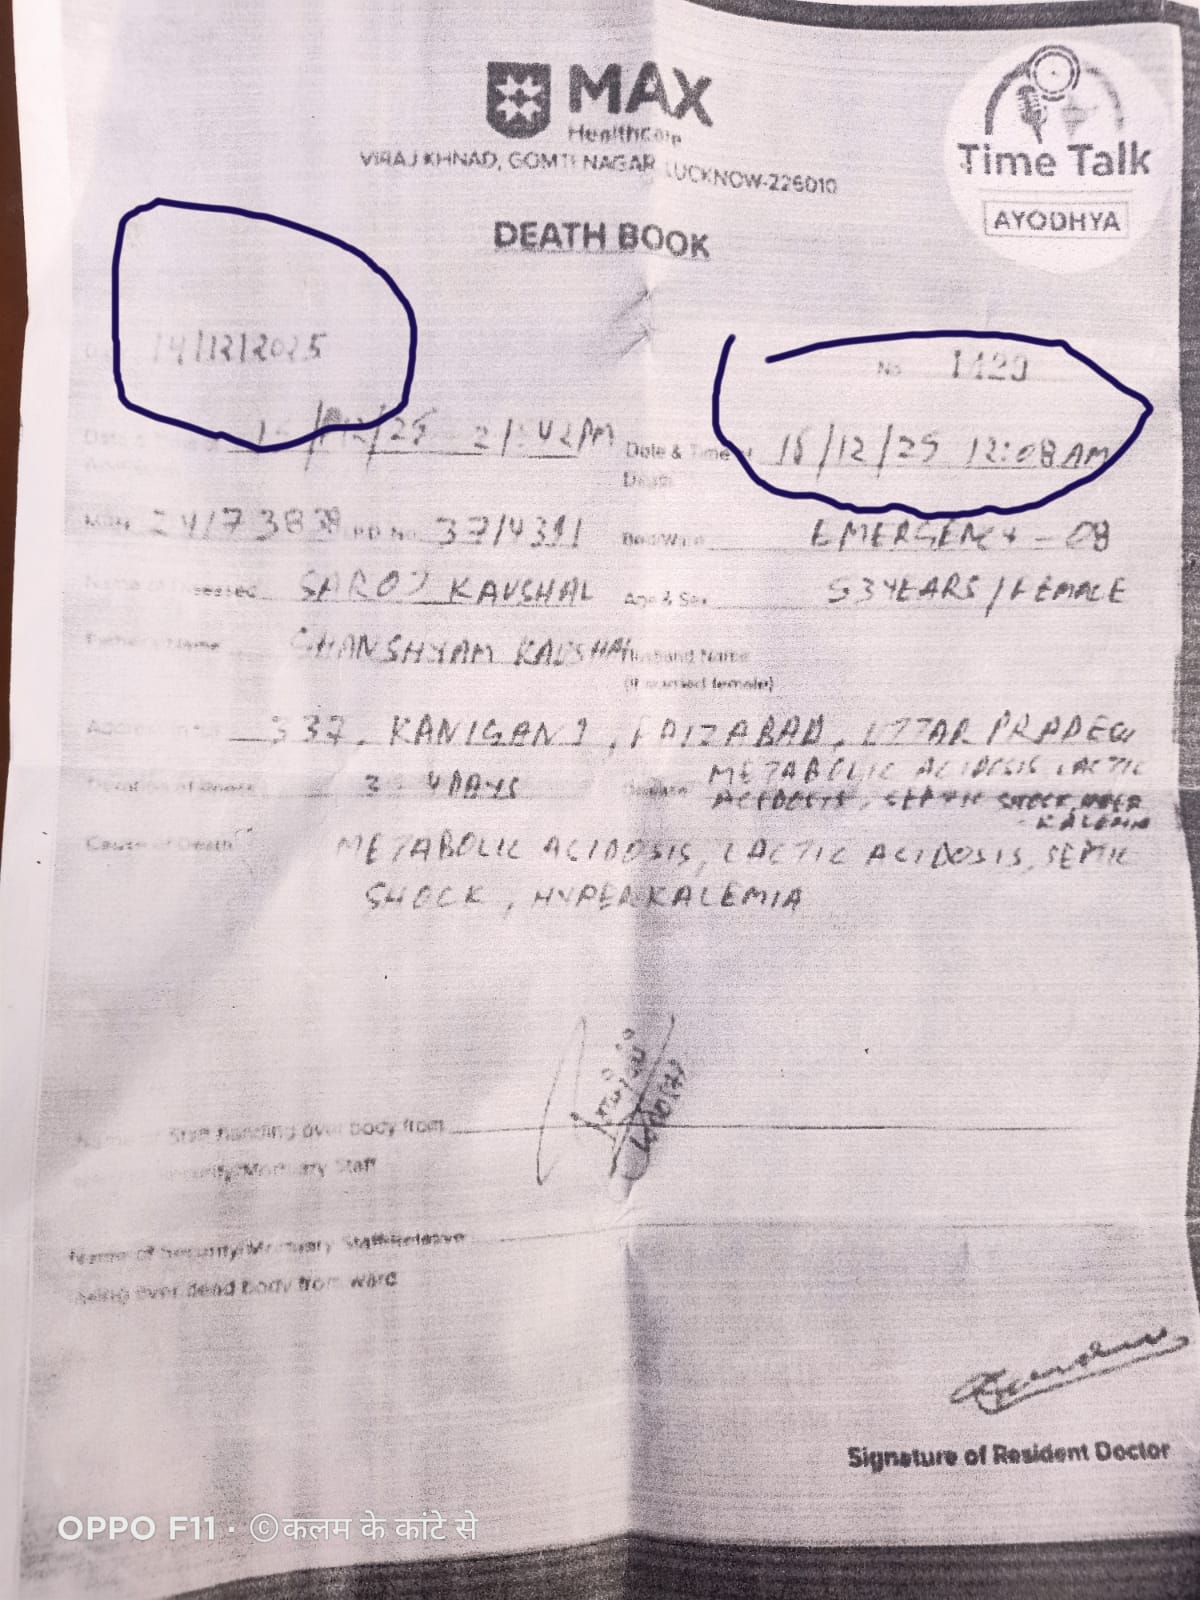 MAX
Healthcare
VIRAJ KHNAD, GOMTI NAGAR LUCKNOW-226010
Time Talk
AYODHYA
DEATH BOOK
14/12/2025
No 1420
/12/25 2/:42PM Date & Time of 15/12/25 12:08AM
Death
24/7383 37/4391 EMERGENCY - 08
SAROJ KAUSHAL Age & Sex 53YEARS/FEMALE
Father's Name GHANSHYAM KAUSHAL Husband Name
(If married female)
337, KANIGANJ, FAIZABAD, UTTAR PRADESH
Duration of Illness 3 4 DAYS Disease METABOLIC ACIDOSIS LACTIC
ACIDOSIS, SEPTIC SHOCK, HYPER
-KALEMIA
Cause of Death METABOLIC ACIDOSIS, LACTIC ACIDOSIS, SEPTIC
SHOCK, HYPERKALEMIA
Name of Staff handing over body from
Security/Mortuary Staff
Name of Security/Mortuary Staff/Relative
taking over dead body from ward
Signature of Resident Doctor
OPPO F11 · ©कलम के कांटे से